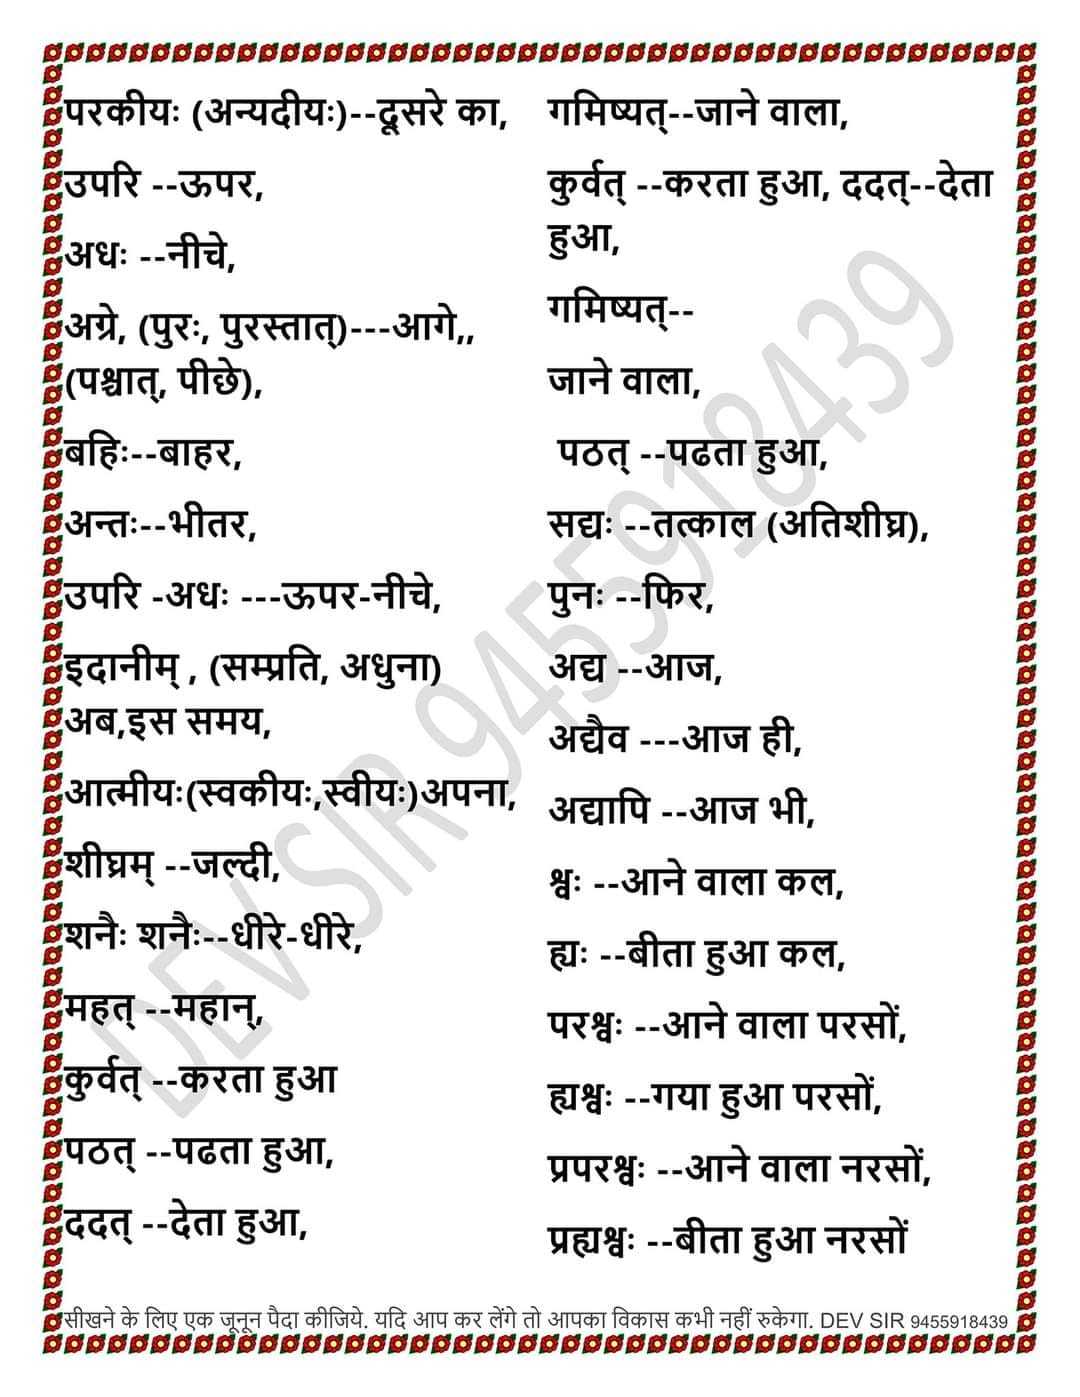 परकीयः (अन्यदीयः)--दूसरे का,
उपरि --ऊपर,
अधः --नीचे,
अग्रे, (पुरः, पुरस्तात्)---आगे,,
(पश्चात्, पीछे),
बहिः--बाहर,
अन्तः--भीतर,
उपरि -अधः ---ऊपर-नीचे,
इदानीम् , (सम्प्रति, अधुना)
अब,इस समय,
आत्मीयः(स्वकीयः,स्वीयः)अपना,
शीघ्रम् --जल्दी,
शनैः शनैः--धीरे-धीरे,
महत् --महान्,
कुर्वत् --करता हुआ
पठत् --पढता हुआ,
ददत् --देता हुआ,
गमिष्यत्--जाने वाला,
कुर्वत् --करता हुआ, ददत्--देता
हुआ,
गमिष्यत्--
जाने वाला,
पठत् --पढता हुआ,
सद्यः --तत्काल (अतिशीघ्र),
पुनः --फिर,
अद्य --आज,
अद्यैव ---आज ही,
अद्यापि --आज भी,
श्वः --आने वाला कल,
ह्यः --बीता हुआ कल,
परश्वः --आने वाला परसों,
ह्यश्वः --गया हुआ परसों,
प्रपरश्वः --आने वाला नरसों,
प्रह्यश्वः --बीता हुआ नरसों
DEV SIR 9455918439
सीखने के लिए एक जूनून पैदा कीजिये. यदि आप कर लेंगे तो आपका विकास कभी नहीं रुकेगा. DEV SIR 9455918439